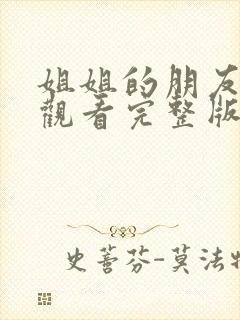 姐姐的朋友
觀看完整版
史蒈芬-莫法特